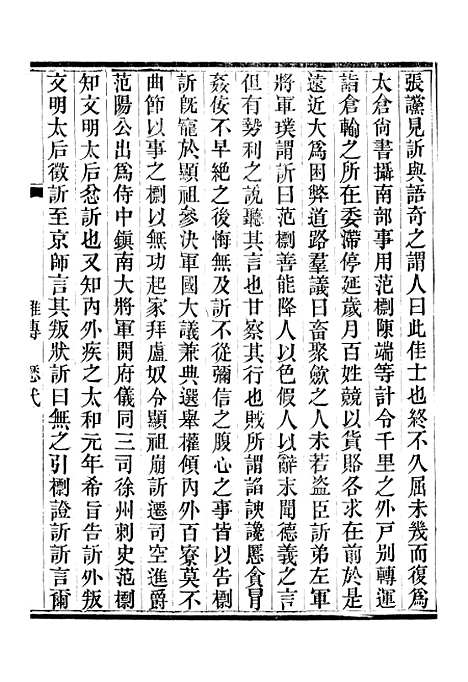 張讜見訢與語奇之謂人曰此佳士也終不久屈未幾而復爲
太倉尙書攝南部事用范𣛮陳端等計令千里之外戸別轉運
詣倉輸之所在委滯停延歲月百姓競以貨賂各求在前於是
遠近大爲困弊道路羣議曰畜聚歛之人未若盜臣訢弟左軍
將軍璞謂訢曰范𣛮善能降人以色假人以辭未聞德義之言
但有勢利之說聽其言也甘察其行也賊所謂諂諛讒慝貪冒
姦佞不早絶之後悔無及訢不從彌信之腹心之事皆以告𣛮
訢旣寵於顯祖參決軍國大議兼典選舉權傾内外百寮莫不
曲節以事之𣛮以無功起家拜盧奴令顯祖崩訢遷司空進爵
范陽公出爲侍中鎭南大將軍開府儀同三司徐州刺史范𣛮
知文明太后忿訢也又知内外疾之太和元年希旨告訢外叛
文明太后徵訢至京師言其叛狀訢曰無之引𣛮證訢訢言爾
雜傳 歷代